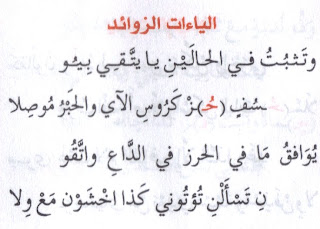 الياءات الزوائد
وتَثبُتُ فِي الحالَيْنِ يا يتَّقِي بِيُو
سُفٍ (حُـ)زْ كَرُوسِ الآي والحَبْرُ مُوصِلا
يُوَافقُ مَا في الحرز في الدَّاعِ واتَّقُو
نِ تَسْأَلْنِ تُؤتُوني كَذا اخْشَوْن مَعْ وِلا